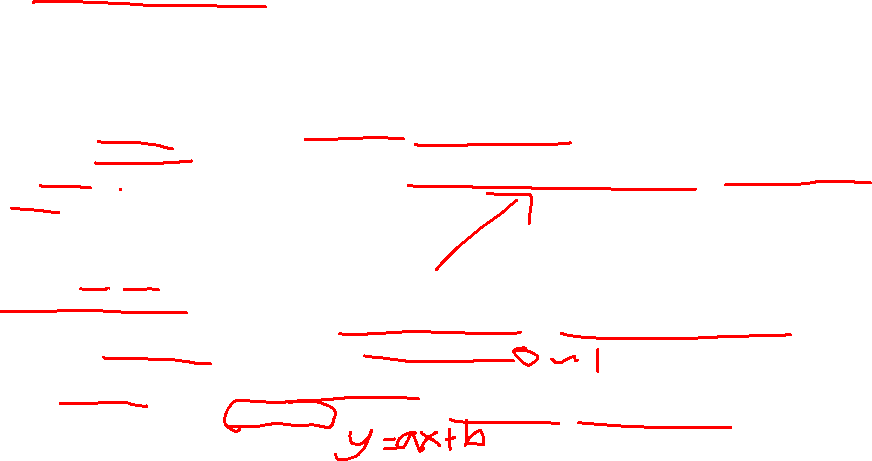 0~1
y=ax+b